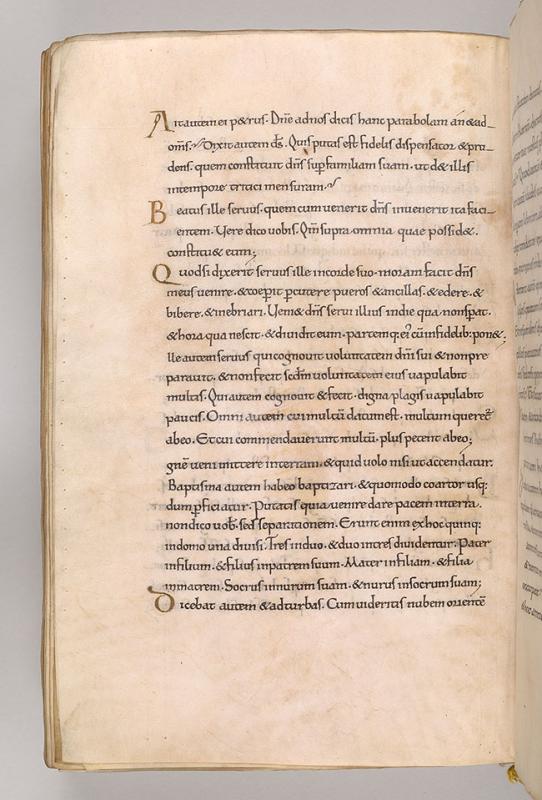 Ait autem ei petrus. Dñe ad nos dicis hanc parabolam an & ad
om̃s. Dixit autem dñs. Quis putas est fidelis dispensator & pru
dens. quem constituit dñs sup familiam suam. ut d& illis
intempore tritici mensuram.
Beatus ille servus. quem cum venerit dñs invenerit ita faci
entem. Vere dico vobis. Qm̃ supra omnia quae possid&.
constitu& eum;
Quodsi dixerit servus ille incorde suo. moram facit dñs
meus venire. & coeperit percutere pueros & ancillas. & edere. &
bibere. & inebriari. Veni& dñs servi illius indie qua non sperat.
& hora qua nescit. & dividit eum. partemq; eius cũ infidelib; pon&;
lle autem servus qui cognovit voluntatem dñi sui & non pre
paravit. & non fecit scdm voluntatem eius vapulabit
multis. Qui autem cognovit & fecit. digna plagis vapulabit
paucis. Omni autem cui multũ datum est. multum queret̃
abeo. Et cui commendaverunt multũ. plus petent abeo;
gnẽ veni mittere interram. & quid volo nisi ut accendatur.
Baptisma autem habeo baptizari. & quomodo coartor usq;
dum pficiatur. Putatis quia veni dare pacem interra.
non dico vob̃. sed separationem. Erunt enim ex hoc quinq;
indomo una divisi. Tres induo. & duo intres dividentur. Pater
infilium. & filius inpatrem suum. Mater infiliam. & filia
inmatrem. Socrus innurum suam. & nurus insocrum suam;
Dicebat autem & ad turbas. Cum videritis nubem orientẽ